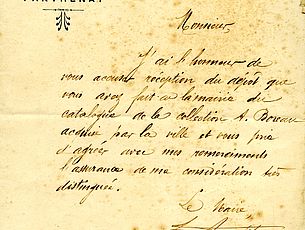 PARTHENAY
Monsieur,
J'ai l'honneur de
vous accuser réception du dépôt que
vous avez fait à la mairie du
catalogue de la collection A. Boreau
acquise par la ville et vous prie
d'agréer avec mes remerciements
l'assurance de ma considération très
distinguée.
Le Maire,